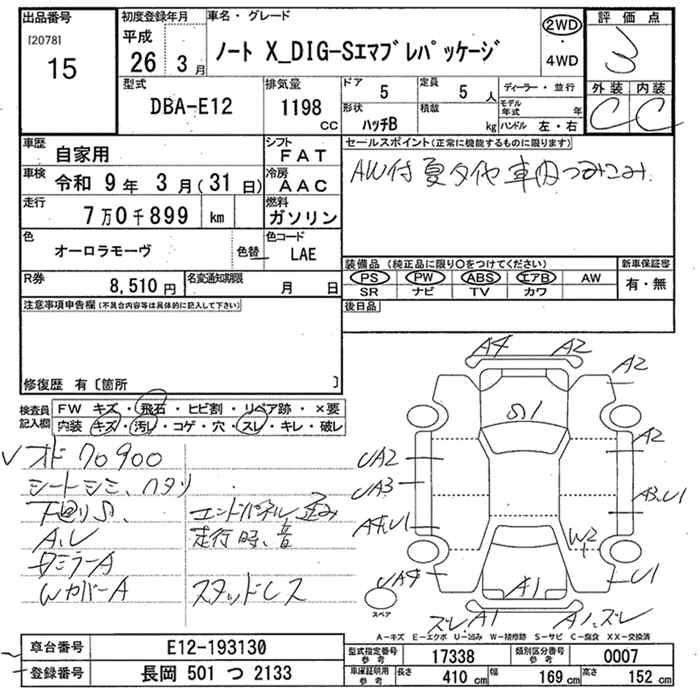 出品番号
[2078]
15
初度登録年月
平成
26 3 月
車名・グレード
ノート X_DIG-Sエマブレパッケージ
2WD
・
4WD
評価点
3
外装 内装
C C
型式
DBA-E12
排気量
1198
CC
ドア
5
定員
5 人
形状
ハッチB
積載
kg
ディーラー・並行
モデル年式 年
ハンドル 左・右
車歴
自家用
シフト
FAT
車検
令和 9 年 3 月(31 日)
冷房
AAC
走行
7 万 0 千 899 km
燃料
ガソリン
色
オーロラモーヴ
色替
色コード
LAE
R券
8,510 円
名変通知期限
月 日
セールスポイント(正常に機能するものに限ります)
AW付 夏タイヤ 車内つみこみ
装備品(純正品に限り〇をつけてください)
新車保証書
PS PW ABS エアB AW
SR ナビ TV カワ
有・無
後日品
注意事項申告欄(不具合内容等は具体的に記入して下さい)
修復歴 有〔箇所 〕
検査員記入欄
FW キズ・飛石・ヒビ割・リペア跡・×要
内装 キズ・汚レ・コゲ・穴・スレ・キレ・破レ
✓オド70900
シートシミ、ヘタリ
下廻りS、 エンドパネル歪み
A、U 走行時、音
Rミラー A
Wカバー A スタッドレス
A4 A2
A2
S1
UA2
A2
UA3
A3、U1
A4、U1
W2
UA4
U1
A1
スペア
ズレ、A1
A1、ズレ
A-キズ E-エクボ U-凹み W-補修跡 S-サビ C-腐食 XX-交換済
車台番号
E12-193130
登録番号
長岡 501 つ 2133
型式指定番号
参考
17338
類別区分番号
参考
0007
車庫証明用
参考
長さ
410 cm
幅
169 cm
高さ
152 cm